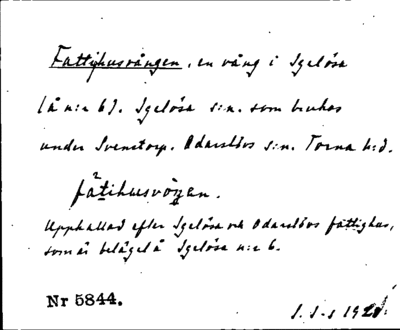 Fattighusvången, en vång i Igelösa
(å n:r 6). Igelösa s:n. som brukas
under Svenstorp. Odarslövs s:n. Torna h:d.
Upphallad efter Igelösa och Odarslövs fattighus,
som är belägel å Igelösa n:r 6.
Nr 5844.